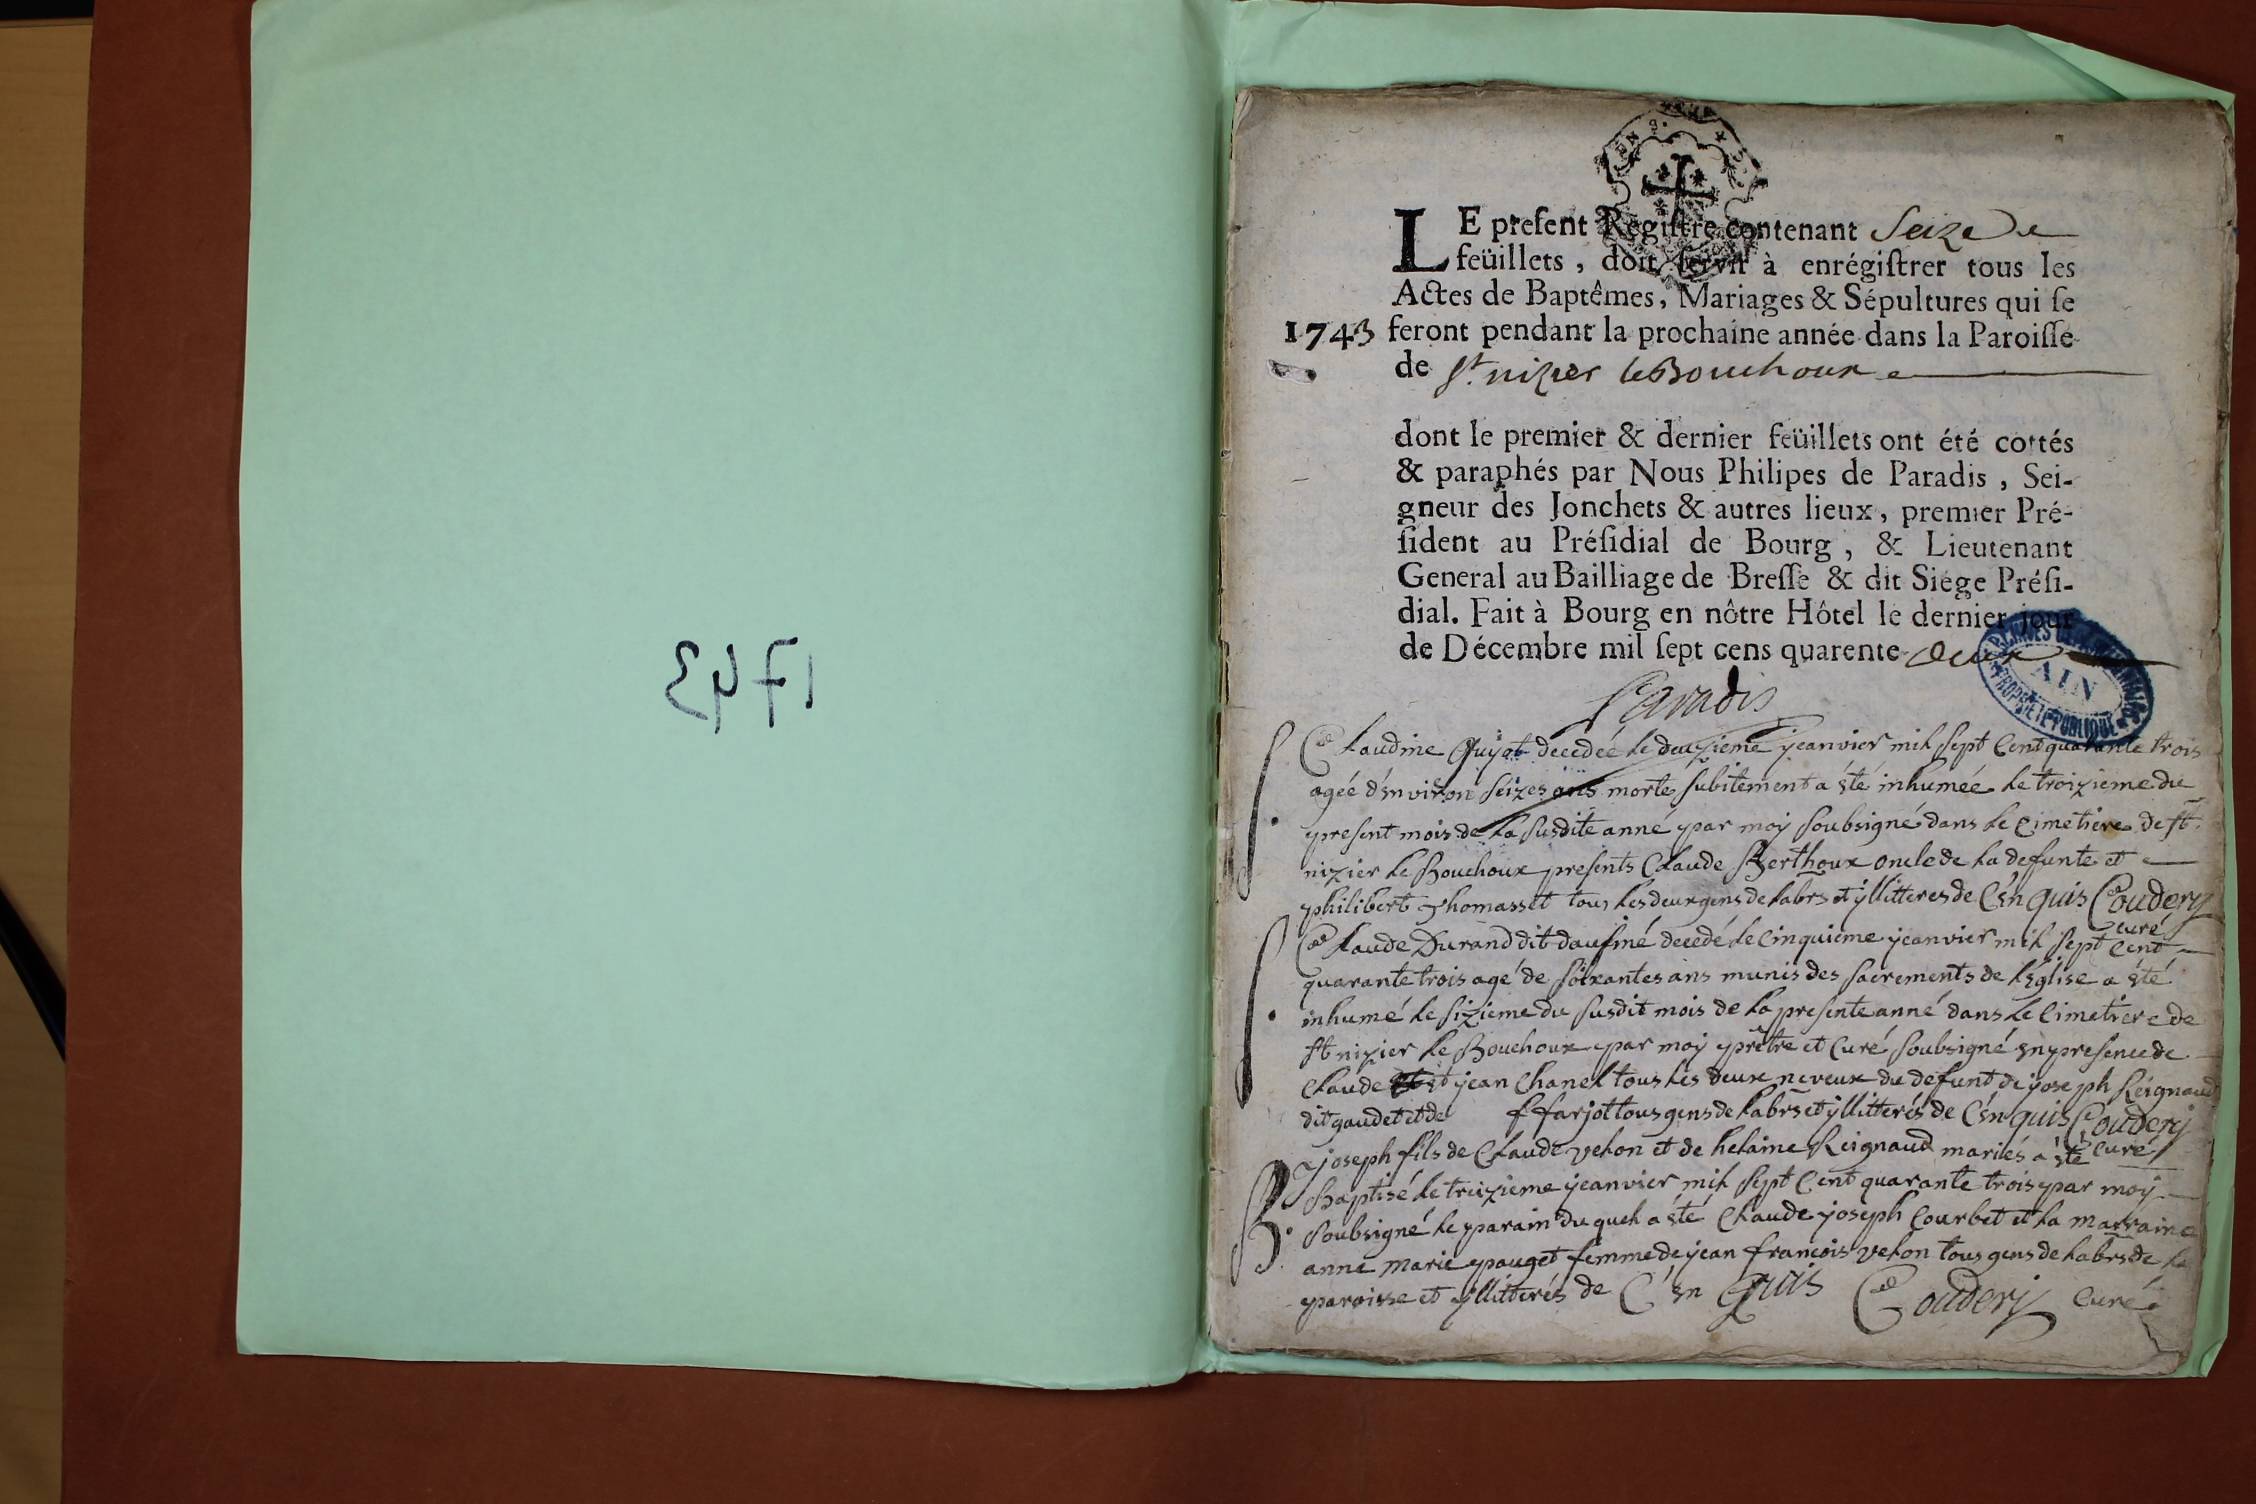 1743
LE preſent Regiſtre contenant Seize
feüillets, doit ſervir à enrégiſtrer tous les
Actes de Baptêmes, Mariages & Sépultures qui ſe
1743 feront pendant la prochaine année dans la Paroiſſe
de st. nizier le Bouchoux
dont le premier & dernier feüillets ont été cottés
& paraphés par Nous Philipes de Paradis, Sei-
gneur des Jonchets & autres lieux, premier Pré-
ſident au Préſidial de Bourg, & Lieutenant
General au Bailliage de Breſſe & dit Siége Préſi-
dial. Fait à Bourg en nôtre Hôtel le dernier jour
de Décembre mil ſept cens quarente deux
AIN
PROPRIETE PUBLIQUE
Paradis
Claudine Guyot decedée le deuzieme jeanvier mil sept Cent quarante trois
agéé d'environ seizes ans morte subitement a été inhumée le troizieme du
present mois de la susdite anné par moÿ soubsigné dans le Cimetiere de st.
nizier le Bouchoux presents Claude Berthoux oncle de la defunte et
philibert thomasset tous les deux gens de labrs et ÿllitteres de C'en quis Coudery
curé
Claude Durand dit daufiné decedé le Cinquieme jeanvier mil sept Cent
quarante trois agé de soixantes ans munis des sacrements de l'Eglise a été
inhumé le sizieme du susdit mois de la presente anné dans le Cimetiere de
st nizier le Bouchoux par moÿ prètre et Curé soubsigné en presence de
Claude et jean Chanel tous les deux neveux du defunt de joseph Reignaud
dit gaudet et de ffarjot tous gens de labrs et ÿllitterés de C'en quis Coudery
curé
B. joseph fils de Claude velon et de helaine Reignaud mariés a été
Baptisé le treizieme jeanvier mil sept Cent quarante trois par moÿ
soubsigné le parain du quel a été Claude joseph Courbet et la marraine
anne marie pauget femme de jean francois velon tous gens de labrs de la
paroisse et ÿllitterés de C'en quis Coudery curé